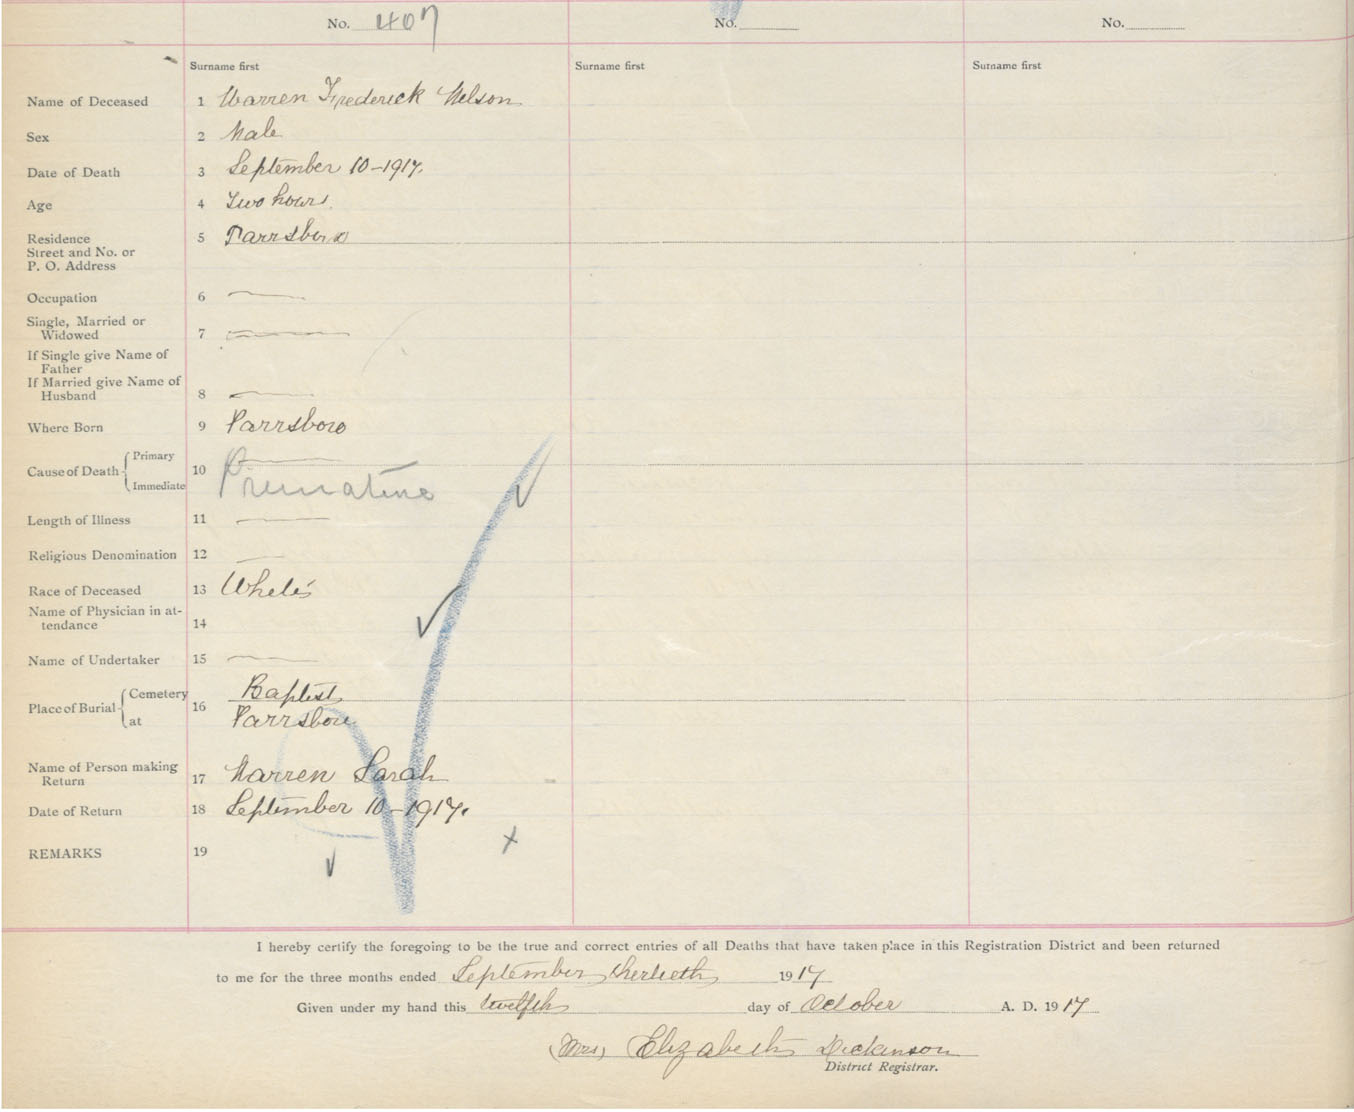 No. 407 No. No.
Surname first Surname first Surname first
Name of Deceased 1 Warren Frederick Nelson
Sex 2 Male
Date of Death 3 September 10-1917.
Age 4 Two hours.
Residence 5 Parrsboro
Street and No. or
P. O. Address
Occupation 6
Single, Married or
Widowed 7
If Single give Name of
Father
If Married give Name of
Husband 8
Where Born 9 Parrsboro
Cause of Death { Primary
10 Premature
Immediate
Length of Illness 11
Religious Denomination 12
Race of Deceased 13 White
Name of Physician in at-
tendance 14
Name of Undertaker 15
Place of Burial { Cemetery 16 Baptist
at Parrsboro
Name of Person making
Return 17 Warren Sarah
Date of Return 18 September 10-1917.
REMARKS 19
I hereby certify the foregoing to be the true and correct entries of all Deaths that have taken place in this Registration District and been returned
to me for the three months ended September thertieth 1917
Given under my hand this twelfth day of October A. D. 1917
(Mrs) Elizabeth Dickinson
District Registrar.